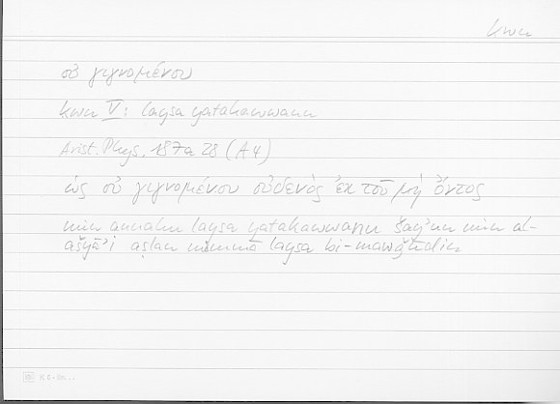 kwn
οὐ γιγνομένου
kwn V: laysa yatakawwanu
Arist. Phys. 187a 28 (A4)
ὡς οὐ γιγνομένου οὐδενὸς ἐκ τοῦ μὴ ὄντος
min annahu laysa yatakawwanu šayʾun min al-
ašyāʾi aṣlan mimmā laysa bi-mawǧūdin